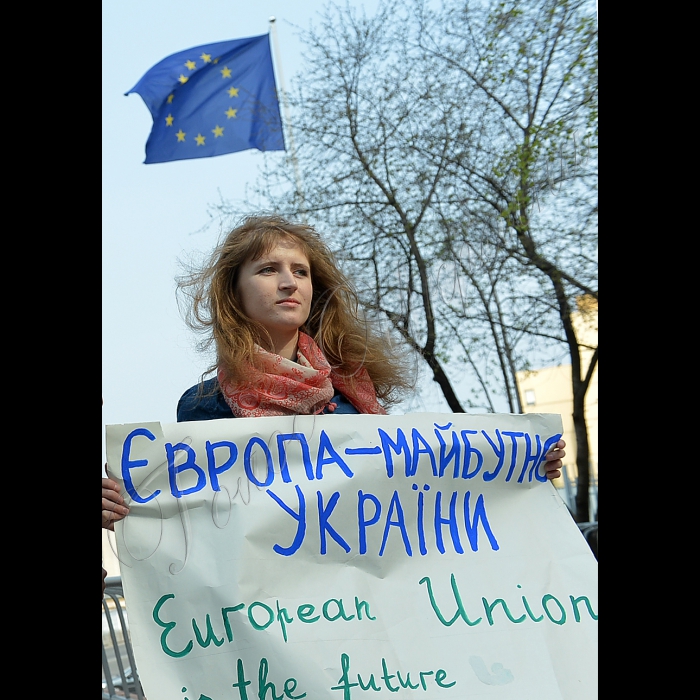 ЄВРОПА-МАЙБУТНЄ
УКРАЇНИ
European Union
is the future